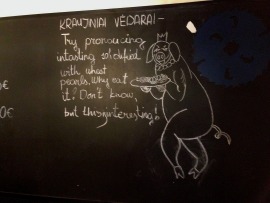 KRAUJINIAI VĖDARAI -
Try pronoucing
intasting
with wheat
pearls. Why eat
it? Don't know,
but this interesting!
0€